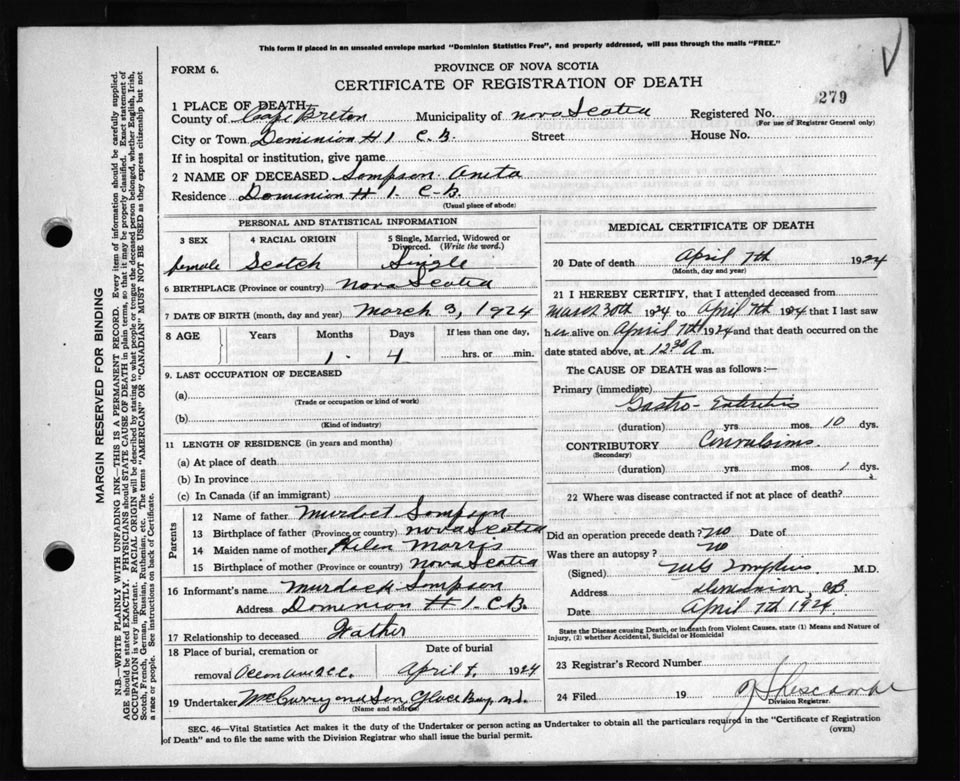 This form if placed in an unsealed envelope marked "Dominion Statistics Free", and properly addressed, will pass through the mails "FREE."
FORM 6.
PROVINCE OF NOVA SCOTIA
CERTIFICATE OF REGISTRATION OF DEATH
279
1 PLACE OF DEATH
County of Cape Breton Municipality of Nova Scotia Registered No.
(For use of Registrar General only)
City or Town Dominion # 1 C.B. Street House No.
If in hospital or institution, give name
2 NAME OF DECEASED Sompson Anita
Residence Dominion # 1. C-B.
(Usual place of abode)
PERSONAL AND STATISTICAL INFORMATION
3 SEX 4 RACIAL ORIGIN 5 Single, Married, Widowed or Divorced. (Write the word.)
female Scotch Single
6 BIRTHPLACE (Province or country) Nova Scotia
7 DATE OF BIRTH (month, day and year) March 3, 1924
8 AGE Years Months Days If less than one day,
1. 4 hrs. or min.
9. LAST OCCUPATION OF DECEASED
(a)
(Trade or occupation or kind of work)
(b)
(Kind of industry)
11 LENGTH OF RESIDENCE (in years and months)
(a) At place of death
(b) In province
(c) In Canada (if an immigrant)
Parents
12 Name of father Murdoct Sompson
13 Birthplace of father (Province or country) Nova Scotia
14 Maiden name of mother Helen Morris
15 Birthplace of mother (Province or country) Nova Scotia
16 Informant's name Murdock Sompson
Address Dominion # 1. C.B.
17 Relationship to deceased Father
18 Place of burial, cremation or Date of burial
removal April 1924
19 Undertaker McCurry and Son, Glace Bay N.S.
(Name and address)
MEDICAL CERTIFICATE OF DEATH
20 Date of death April 7th 1924
(Month, day and year)
21 I HEREBY CERTIFY, that I attended deceased from
March 30th 1924 to April 7th 1924 that I last saw
her alive on April 7th 1924 and that death occurred on the
date stated above, at 12 30 A m.
The CAUSE OF DEATH was as follows :—
Primary (immediate)
Gastro-Enteritis
(duration) yrs. mos. 10 dys.
CONTRIBUTORY Convulsions.
(Secondary)
(duration) yrs. mos. 1 dys.
22 Where was disease contracted if not at place of death?
Did an operation precede death? No Date of
Was there an autopsy? No
(Signed) M.D.
Address Dominion, C.B.
Date April 7th 1924
State the Disease causing Death, or in death from Violent Causes, state (1) Means and Nature of
Injury, (2) whether Accidental, Suicidal or Homicidal
23 Registrar's Record Number
24 Filed 19
Division Registrar.
SEC. 46—Vital Statistics Act makes it the duty of the Undertaker or person acting as Undertaker to obtain all the particulars required in the "Certificate of Registration
of Death" and to file the same with the Division Registrar who shall issue the burial permit.
(OVER)
MARGIN RESERVED FOR BINDING
N.B.—WRITE PLAINLY WITH UNFADING INK—THIS IS A PERMANENT RECORD. Every item of information should be carefully supplied.
AGE should be stated EXACTLY. PHYSICIANS should STATE CAUSE OF DEATH in plain terms, so that it may be properly classified. Exact statement of
OCCUPATION is very important. RACIAL ORIGIN will be described by stating to what people or tongue the deceased person belonged, whether English, Irish,
Scotch, French, German, Russian, Ruthenian, etc. The terms "AMERICAN" OR "CANADIAN" MUST NOT BE USED as they express citizenship but not
a race or people. See instructions on back of Certificate.